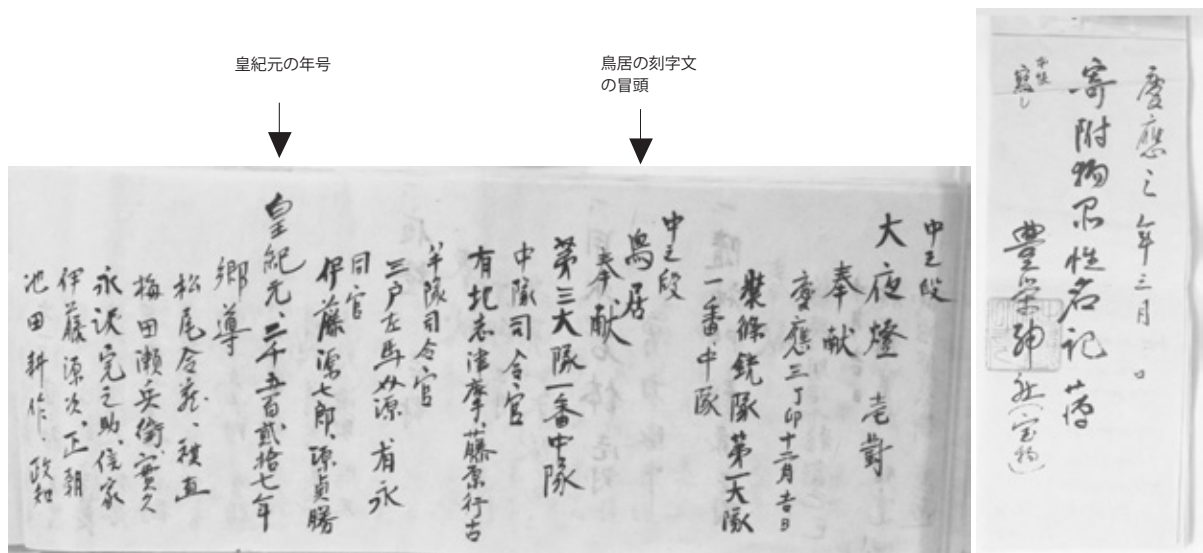 皇紀元の年号
鳥居の刻字文
の冒頭
慶應三年三月 日
寄附物品性名記 簿
本使
寫し
豊栄神社(宝物)
中之段
大夜燈 壱對
奉献
慶應三丁卯十二月吉日
装條銃隊第一大隊
一番中隊
中之段
鳥居
奉献
第三大隊一番中隊
中隊司令官
有地志津摩、藤原行古
半隊司令官
三戸左馬 源 有永
同官
伊藤 七郎、源貞勝
皇紀元、二千五百貳拾七年
郷導
松尾 蔵、積直
梅田瀬兵衛、實久
永沢完之助、信家
伊藤源次、正朝
池田耕作、政和